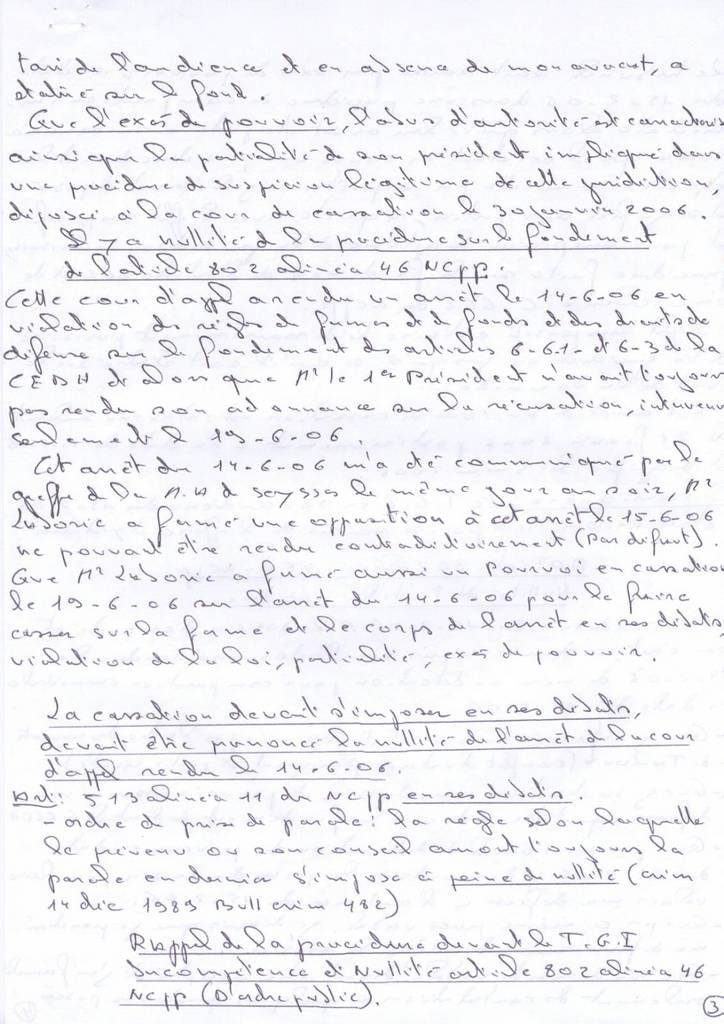 tarif de l'audience et en absence de mon avocat, a
statué sur le fond.
Que l'exés de pouvoir, l'abus d'autorité est caractéris
ainsi que la partialité de son président impliqué dans
une procédure de suspicion légitime de cette juridiction,
déposée à la cour de cassation le 30 janvier 2006.
Il y a Nullité de la procédure sur le fondement
de l'article 802 alinéa 46 NCpp.
Cette cour d'appl a rendu un arrêt le 14-6-06 en
violation des régles de formes et de fonds et des droits de
défense sur le fondement des articles 6 6-1 et 6-3 de la
CEDH et alors que Mr le 1er Président n'avait toujours
pas rendu son ordonnance sur la récusation, intervenu
seulement le 19-6-06.
Cet arrêt du 14-6-06 m'a été communiqué par le
greffe de la M.A de seysses le même jour au soir, Mr
Laborie a formé une opposition à cet arrêt le 15-6-06
ne pouvant être rendu contradictoirement (Par défaut).
Que Mr Laborie a formé aussi un Pourvoi en cassation
le 19-6-06 sur l'arrêt du 14-6-06 pour le faire
casser sur la forme et le corps de l'arrêt en ses débats
violation de la loi, partialité, exés de pouvoir.
La cassation devait s'imposer en ses débats,
devait être prononcé la nullité de l'arrêt de la cour
d'appl rendu le 14-6-06.
Art: 513 alinéa 11 du NCpp en ses débats.
- ordre de prise de parole: la régle selon laquelle
le prévenu ou son conseil auront toujours la
parole en dernier s'impose à peine de nullité (crim
14 déc 1989 Bull crim 482)
Rappel de la procédure devant le T.G.I
Incompétence et Nullité article 802 alinéa 46
NCpp (D'ordre public).
3